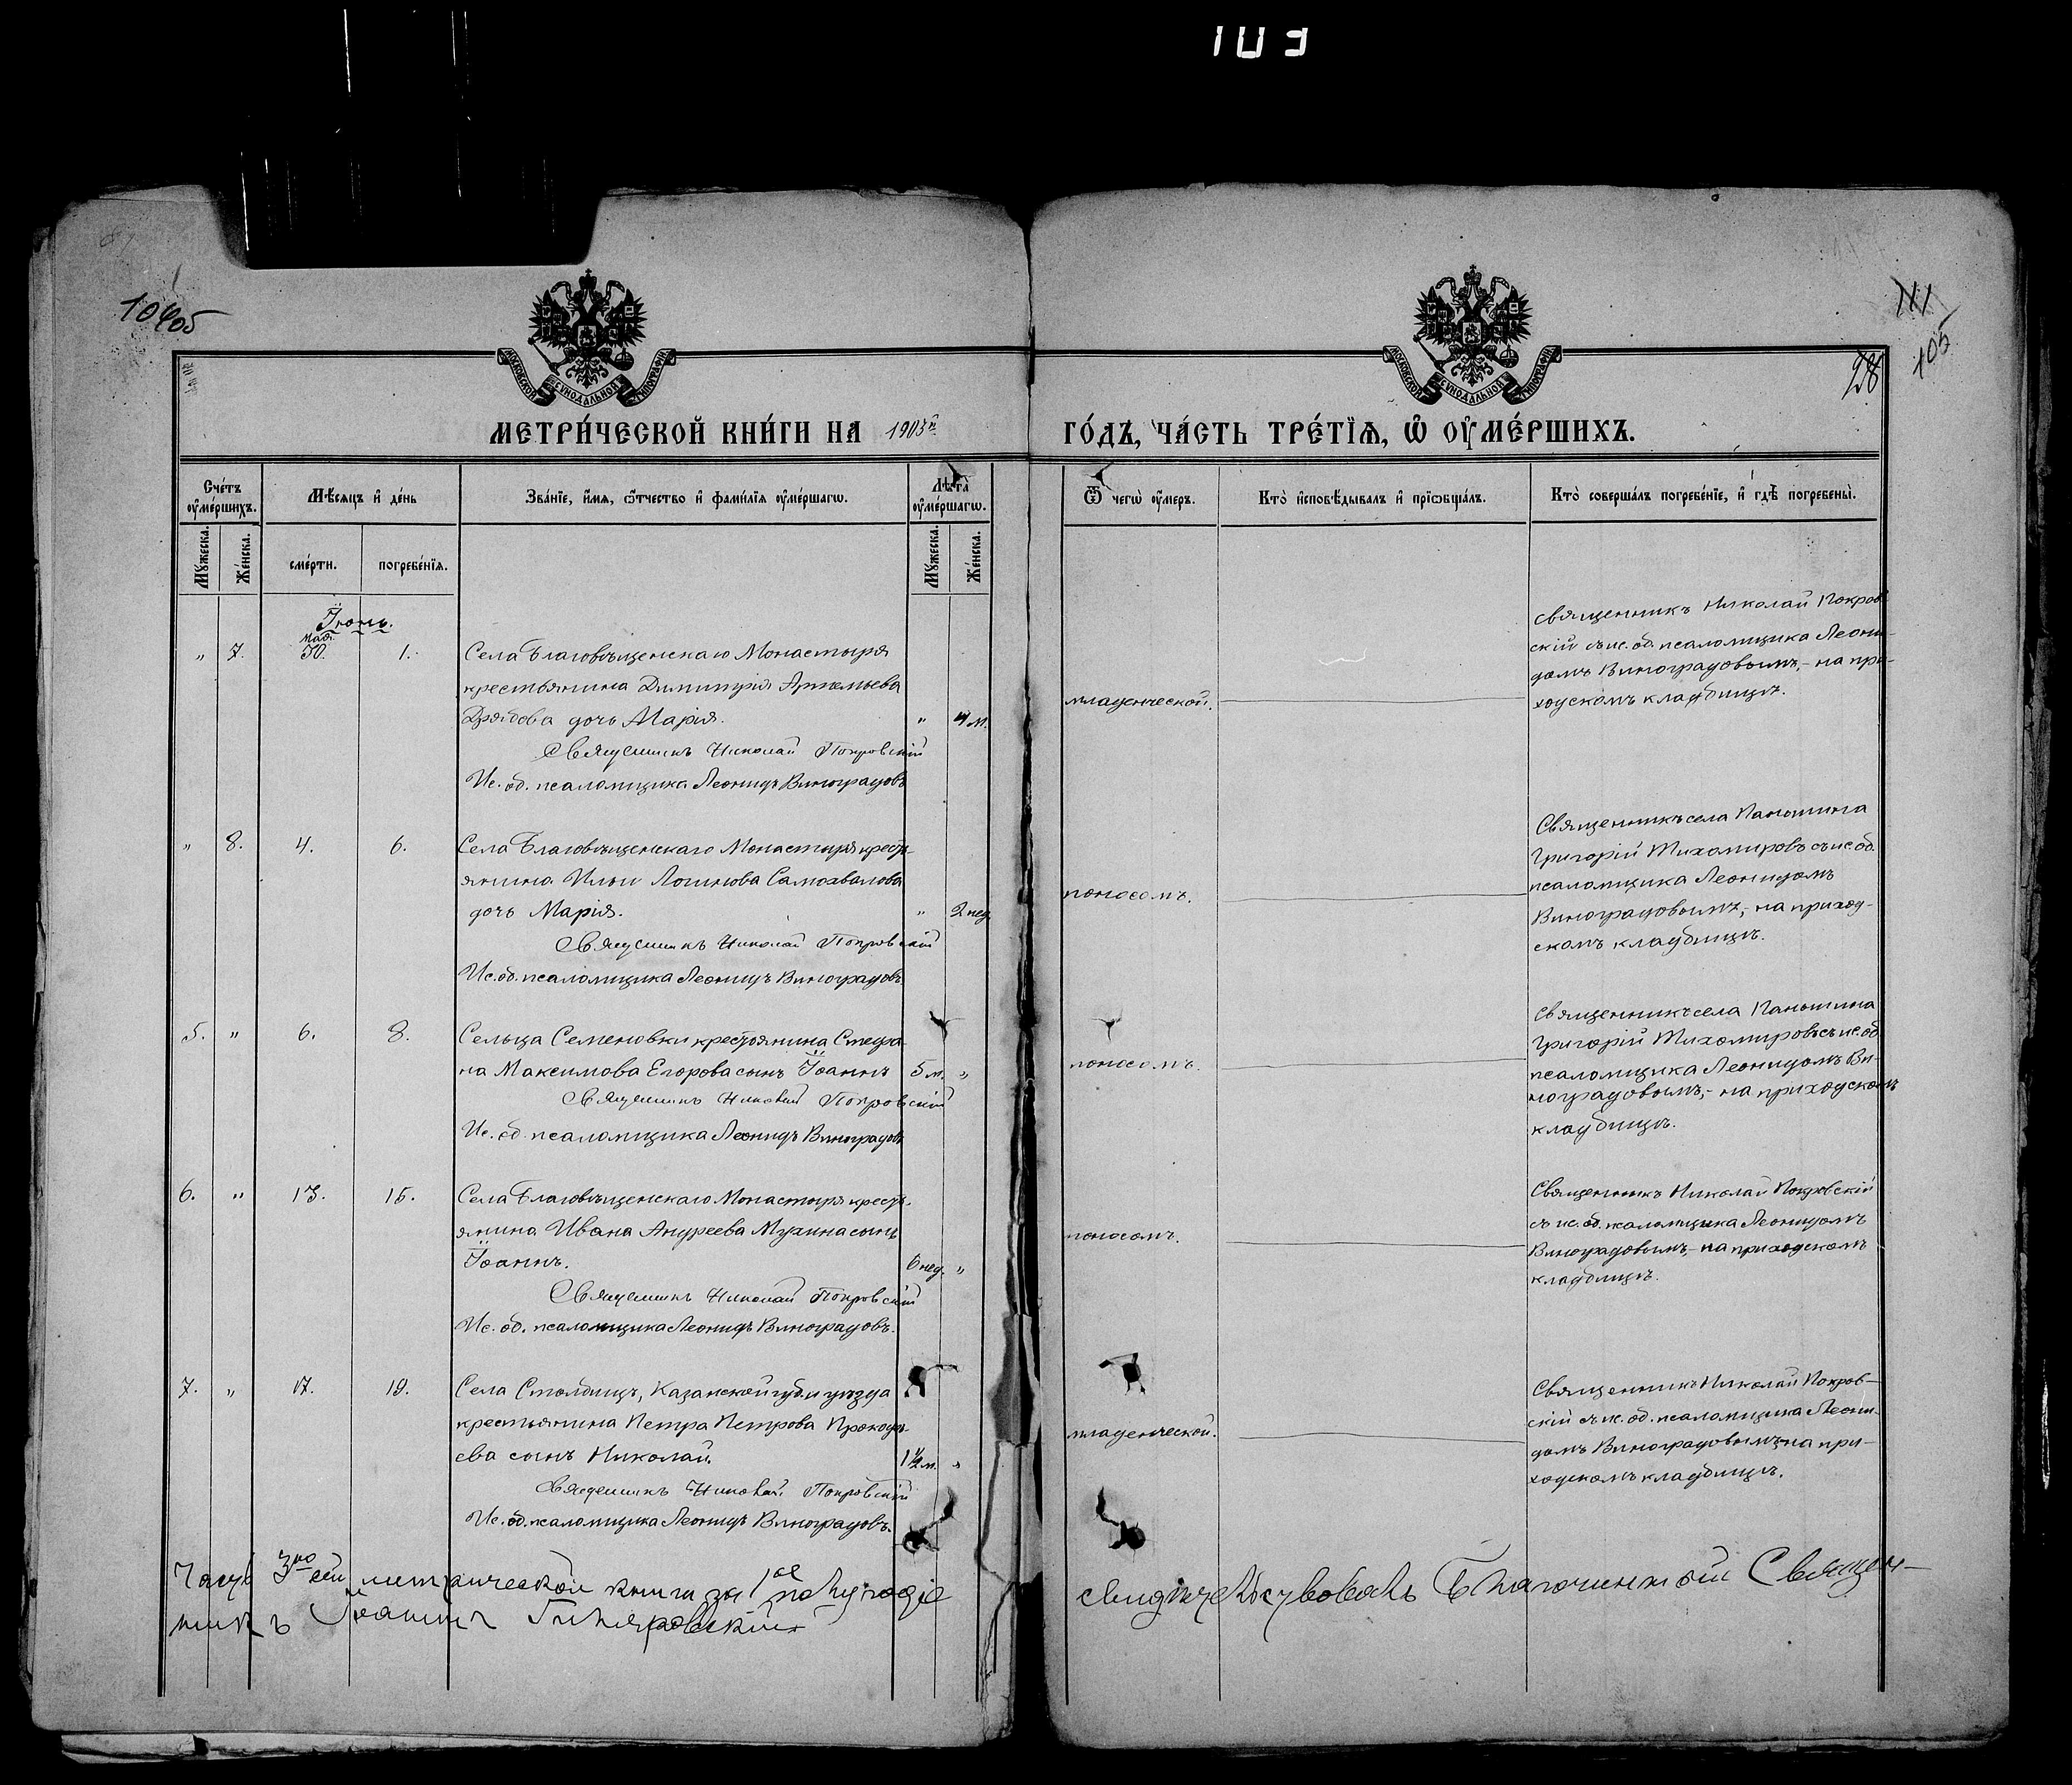 103
105
111
105
28
МОСКОВСКОЙ СѴНОДАЛЬНОЙ ТИПОГРАФІИ
МОСКОВСКОЙ СѴНОДАЛЬНОЙ ТИПОГРАФІИ
МЕТРИ́ЧЕСКОЙ КНИ́ГИ НА 1903й ГО́ДЪ, ЧА́СТЬ ТРЕ́ТЇѦ, Ѡ҆ ОУ҆МЕ́РШИХЪ.
Сче́тъ оу҆ме́ршихъ.
Мѣ́сѧцъ и҆ де́нь
Зва́нїе, и҆́мѧ, ѻ҆́тчество и҆ фами́лїѧ оу҆ме́ршагѡ.
Лѣ́та оу҆ме́ршагѡ.
Ѿ чегѡ̀ оу҆́меръ.
Кто̀ и҆сповѣ́дывалъ и҆ прїѡбща́лъ.
Кто̀ соверша́лъ погребе́нїе, и҆ гдѣ̀ погребены̀.
Мꙋ́жеска.
Же́нска.
сме́рти.
погребе́нїѧ.
Мꙋ́жеска.
Же́нска.
Іюнь.
мая.
„ 7. 30. 1. Села Благовѣщенскаго Монастыря
крестьянина Димитрія Артемьева
Дрябова дочь Марія. „ 4 м.
Священникъ Николай Покровскій
Ис. об. псаломщика Леонидъ Виноградовъ
младенческой.
священникъ Николай Покров-
скій съ ис. об. псаломщика Леони-
домъ Виноградовымъ,- на при-
ходскомъ кладбищѣ.
„ 8. 4. 6. Села Благовѣщенскаго Монастыря кресть-
янина Ильи Логинова Самохвалова
дочь Марія. „ 2 нед.
Священникъ Николай Покровскій
Ис. об. псаломщика Леонидъ Виноградовъ.
поносомъ.
Священникъ села Паньшина
Григорій Тихомировъ съ ис. об.
псаломщика Леонидомъ
Виноградовымъ,- на приход-
скомъ кладбищѣ.
5. „ 6. 8. Сельца Семеновки крестьянина Стефа-
на Максимова Егорова сынъ Іоаннъ 5 м. „
Священникъ Николай Покровскій
Ис. об. псаломщика Леонидъ Виноградовъ
поносомъ.
Священникъ села Паньшина
Григорій Тихомировъ съ ис. об.
псаломщика Леонидомъ Ви-
ноградовымъ,- на приходскомъ
кладбищѣ.
6. „ 13. 15. Села Благовѣщенскаго Монастыря кресть-
янина Ивана Андреева Мухина сынъ
Іоаннъ. 6 нед. „
Священникъ Николай Покровскій
Ис. об. псаломщика Леонидъ Виноградовъ.
поносомъ.
Священникъ Николай Покровскій
съ ис. об. псаломщика Леонидомъ
Виноградовымъ,- на приходскомъ
кладбищѣ.
7. „ 17. 19. Села Столбищъ, Казанской губ. и уѣзда
крестьянина Петра Петрова Прокофь-
ева сынъ Николай. 1½ м. „
Священникъ Николай Покровскій
Ис. об. псаломщика Леонидъ Виноградовъ.
младенческой.
Священникъ Николай Покров-
скій съ ис. об. псаломщика Леони-
домъ Виноградовымъ на при-
ходскомъ кладбищѣ.
Часть 3ю сей метрической книги за 1ое полугодіе свидѣтельствовалъ Благочинный Священ-
никъ Іоаннъ Гиляровскій